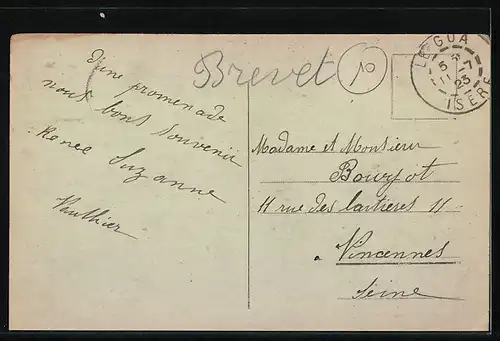 Brevet
10
LE GUA
5 7
11
23
ISERE
d'une promenade
nous bons souvenir
Renée Suzanne
Vauthier
Madame et Monsieur
11 rue des 11
a Vincennes
Seine